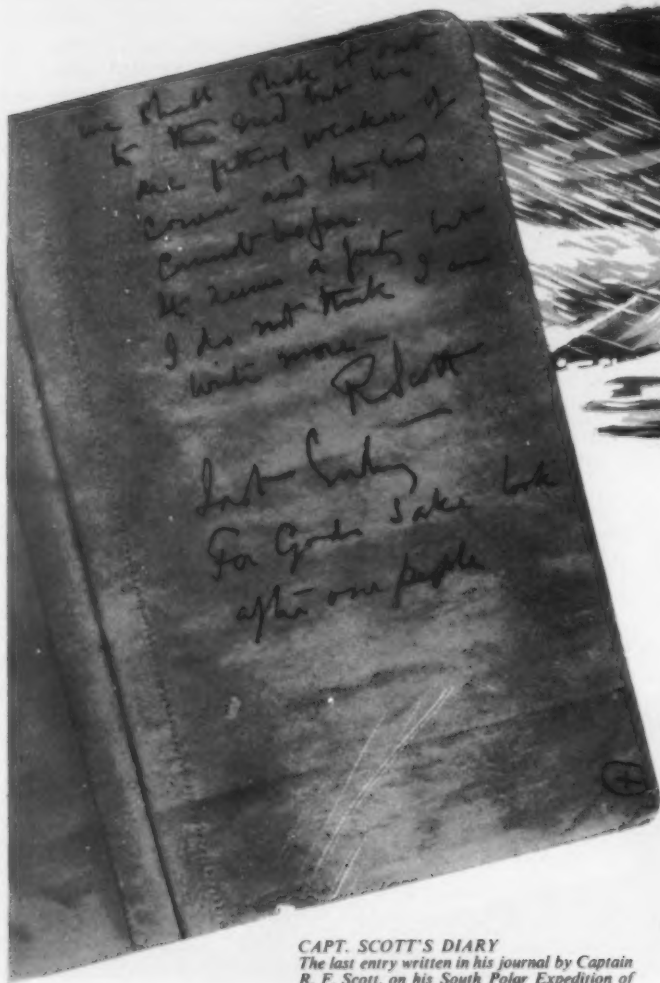 we shall stick it out
to the end but we
are getting weaker of
course and the end
cannot be far.
It seems a pity but
I do not think I can
write more—
R Scott
Last Entry
For Gods sake look
after our people
CAPT. SCOTT'S DIARY
The last entry written in his journal by Captain
R. F. Scott, on his South Polar Expedition of